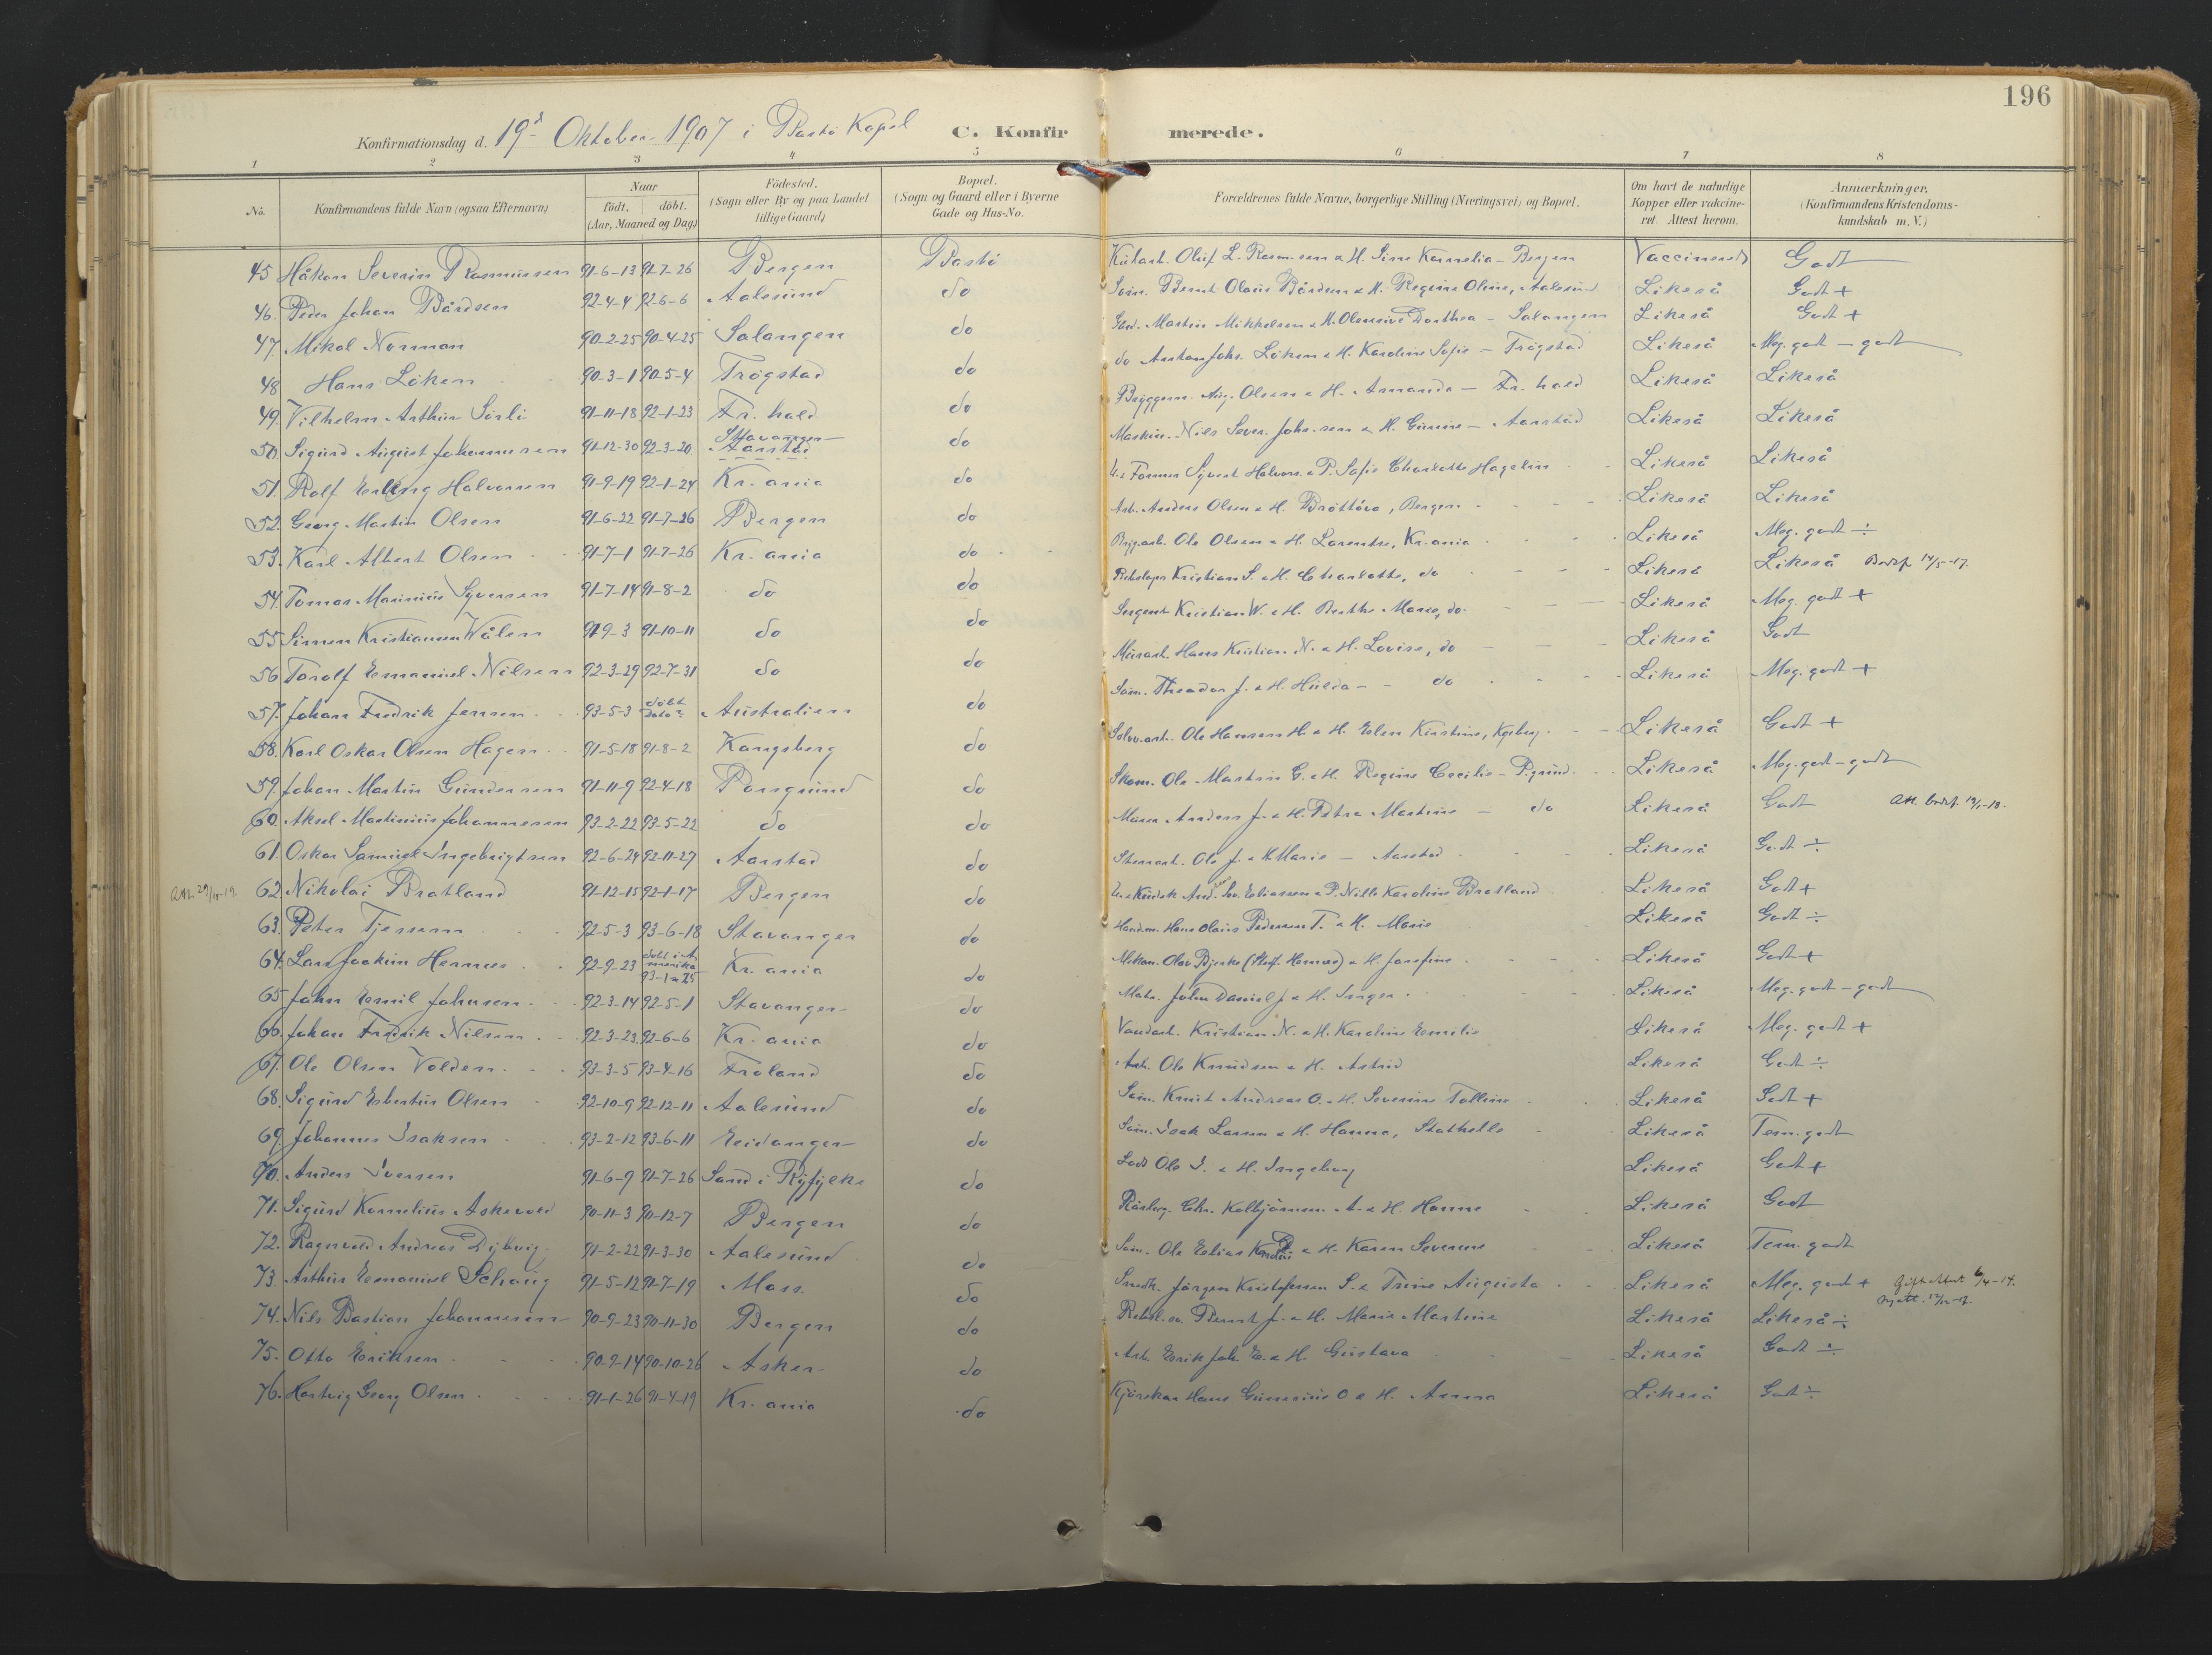 196
Konfirmationsdag d. 19d Oktober 1907 i Bastö Kapel C. Konfirmerede.
1 2 3 4 5 6 7 8
No. Konfirmandens fulde Navn (ogsaa Efternavn) Naar födt, döbt. (Aar, Maaned og Dag) Födested. (Sogn eller By og paa Landet tillige Gaard) Bopæl. (Sogn og Gaard eller i Byerne Gade og Hus-No. Forældrenes fulde Navne, borgerlige Stilling (Næringsvei) og Bopæl. Om havt de naturlige Kopper eller vakcineret. Attest herom. Anmærkninger. (Konfirmandens Kristendomskundskab m. V.)
45 Håkon Severin Rasmussen 91-6-13 91-7-26 Bergen Bastö Oluf L. Rasmussen & H. Sine Kornelia - Bergen Vaccinerede Godt
46. Peder Johan Bårdsen 92-4-4 92-6-6 Aalesund do Bernt Olaus Bårdsen & H. Regine Oline, Aalesund Likeså Godt +
47. Mikal Norman 90-2-25 90-4-25 Salangen do Martin Mikkelsen & H. Dorthea - Salangen Likeså Godt +
48 Hans Löken 90-3-1 90-5-4 Trögstad do do Anton Johs. Löken & H. Karoline Sofie - Trögstad Likeså Meg. godt - godt
49. Vilhelm Arthur Sörli 91-11-18 92-1-23 Fr. hald do Aug. Olsen & H. Amanda - Fr. hald Likeså Likeså
50. Sigurd August Johannesen 91-12-30 92-3-20 Stavanger Aarstad do Maskin. Nils Sever. Johs.sen & H. Gurine - Aarstad Likeså Likeså
51. Rolf Erling Halvorsen 91-9-19 92-1-24 Kr. ania do Sofie Charlotte Hagelin Likeså Likeså
52. Georg Martin Olsen 91-6-22 91-7-26 Bergen do Arb. Anders Olsen & H. Bergen Likeså Likeså
53. Karl Albert Olsen 91-7-1 91-7-26 Kr. ania do Ole Olsen & H. Laurentse, Kr. ania Likeså Meg. godt ÷
54. Tomas Marinius Syversen 91-7-14 91-8-2 do do Kristian S. & H. Charlotte, do Likeså Likeså 14/5-17.
55 Simen Kristiansen Wålen 91 9-3 91-10-11 do do Sergent Kristian W. & H. Berthe Marie, do. Likeså Meg. godt +
56 Torolf Emanuel Nilsen 92-3-29 92-7-31 do do Hans Kristian N. & H. Lovise, do Likeså Godt
57. Johan Fredrik Jensen 93-5-3 döbt Australien do Theodor J. & H. Hulda - do Likeså Meg. godt +
58. Karl Oskar Olsen Hagen 91-5-18 91-8-2 Kongsberg do Ole Hansen H. & H. Elen Kirstine, Likeså Godt +
59. Johan Martin Gundersen 91-11-9 92-4-18 Porsgrund do Skom. Ole Martin G. & H. Regine Cecilie - P.grund. Likeså Meg. godt - godt
60. Aksel Martinius Johannesen 93-2-22 93-5-22 do do Murer Anders J. & H. Petra Martine - do Likeså Godt
61. Oskar Samuel Ingebrigtsen 92-6-24 92-11-27 Aarstad do Ole J. & H. Marie - Aarstad Likeså Godt ÷
62. Nikolai Bratland 91-12-15 92-1-17 Bergen do Eliassen & P. Nille Karoline Bratland Likeså Godt +
63. Peter Tjersem 92-5-3 93-6-18 Stavanger do Hans Olaus Pedersen T. & H. Marie Likeså Godt ÷
64. Lars Joakim Hermes 92-9-23 döbt i Amerika 93-1-25 Kr. ania do Mekan. Olav Bjerke & H. Josefine Likeså Godt +
65 John Emil Johnsen 92-3-14 92-5-1 Stavanger do Matr. John Daniel J. & H. Inger Likeså Meg. godt - godt
66. Johan Fredrik Nilsen 92-3-23 92-6-6 Kr. ania do Kristian N. & H. Karoline Emilie Likeså Meg. godt +
67. Ole Olsen Volden 93-3-5 93-4-16 Froland do Arb. Ole Knudsen & H. Astrid Likeså Godt ÷
68. Sigurd Edvartin Olsen 92-10-9 92-12-11 Aalesund do Knut Andreas O. & H. Severine Likeså Godt +
69. Johannes Isaksen 93-2-12 93-6-11 Eidanger do Isak Larsen & H. Hanna, Stathelle Likeså Tem. godt
70. Anders Iversen 91-6-9 91-7-26 Sand i Ryfylke do Ole I. & H. Ingeborg Likeså Godt +
71. Sigurd Kornelius Askevold 90-11-3 90-12-7 Bergen do Chr. Kolbjörnsen A. & H. Hanne Likeså Godt
72. Ragnvald Andreas Dybvig 91-2-22 91-3-30 Aalesund do Ole Elias & H. Karen Severine Likeså Tem. godt
73. Arthur Emanuel Schaug 91-5-12 91-7-19 Moss do Jørgen Kristofersen S. & Trine Augusta Likeså Meg. godt +
74. Nils Bastian Johannesen 90-9-23 90-11-30 Bergen do Bernt J. & H. Marie Martine Likeså Likeså ÷
75. Otto Eriksen 90-9-14 90-10-26 Asker do Arb. Erik Joh. E. & H. Gustava Likeså Godt ÷
76. Hartvig Georg Olsen 91-1-26 91-4-19 Kr. ania do Hans Gunerius O & H. Anna Likeså Godt ÷